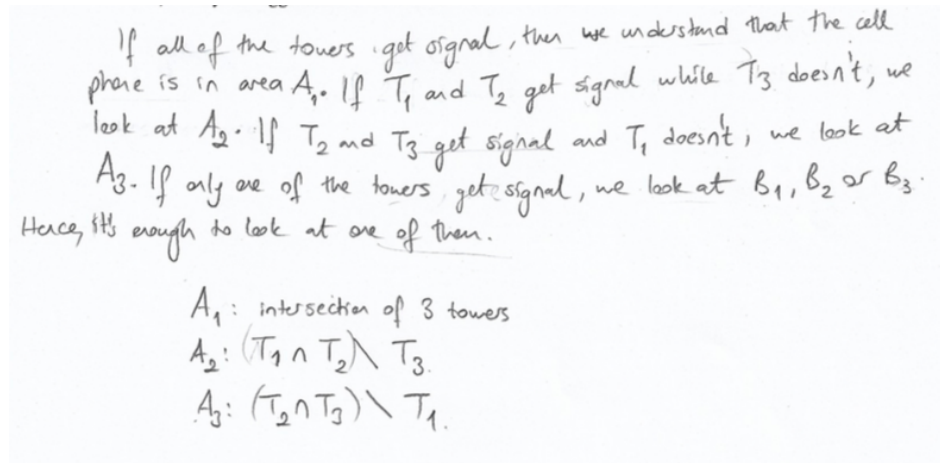 If all of the towers get signal, then we understand that the cell
phone is in area A₁. If T₁ and T₂ get signal while T₃ doesn't, we
look at A₂. If T₂ and T₃ get signal and T₁ doesn't, we look at
A₃. If only one of the towers get signal, we look at B₁, B₂ or B₃.
Hence, it's enough to look at one of them.
A₁: intersection of 3 towers
A₂: (T₁ ∩ T₂) \ T₃.
A₃: (T₂ ∩ T₃) \ T₁.